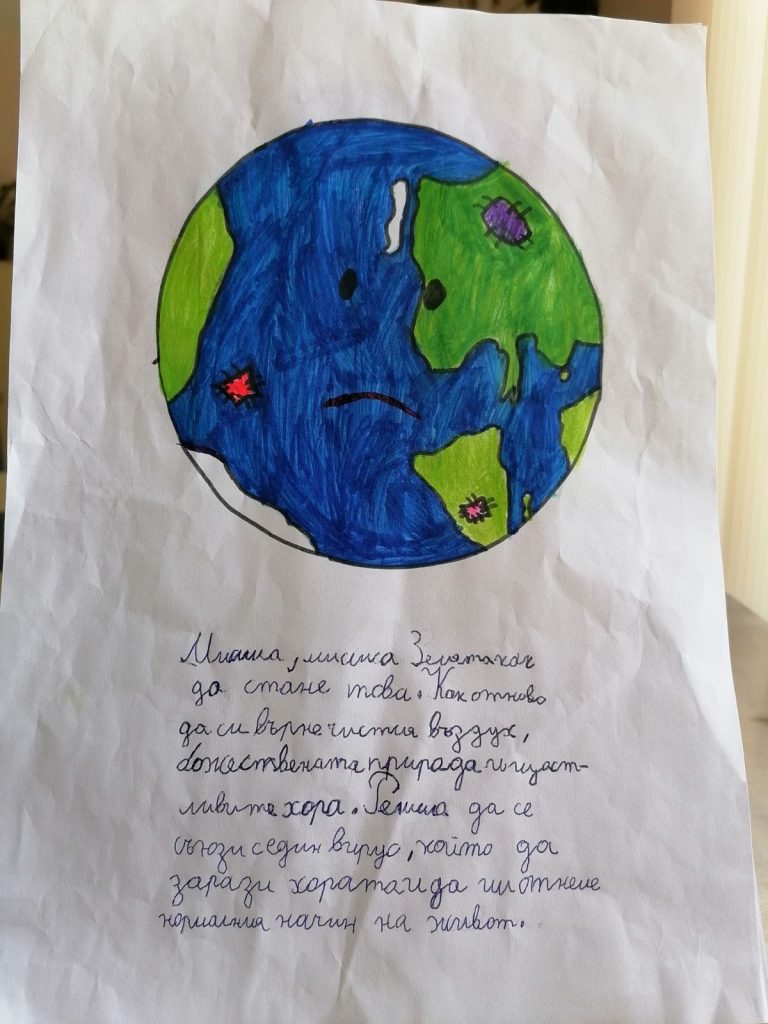 Мисли, мисли Земята как
да стане това. Как отново
да си върне чистия въздух,
божествената природа и щаст-
ливите хора. Решила да се
съюзи с един вирус, който да
зарази хората и да им отнеме
нормалния начин на живот.